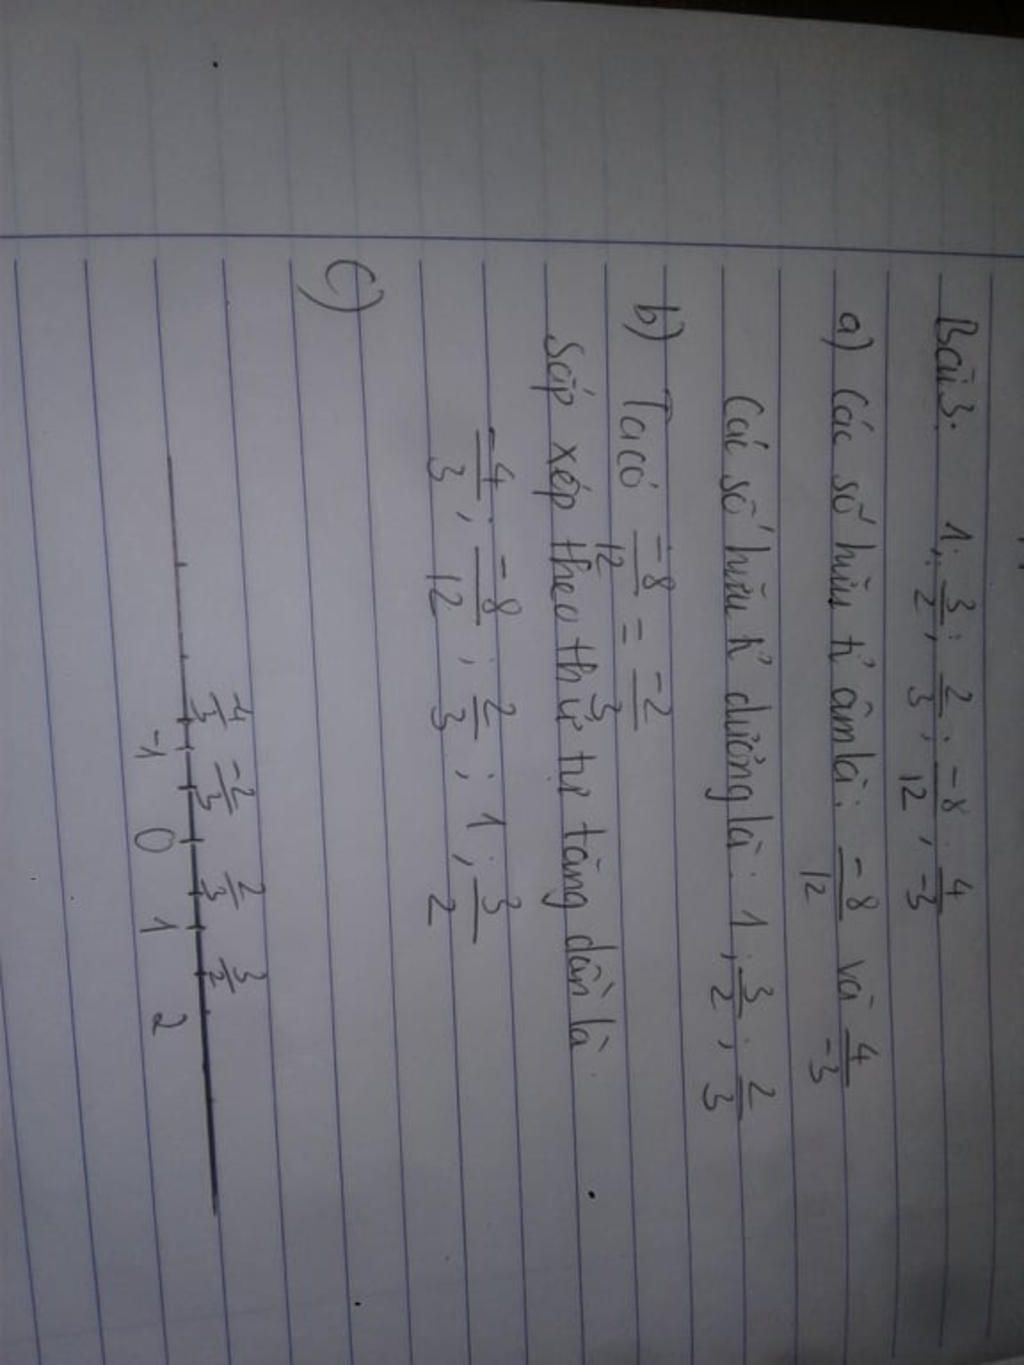 Bài 3. 1; 3/2; 2/3; -8/12; 4/-3
a) Các số hữu tỉ âm là: -8/12 và 4/-3
Các số hữu tỉ dương là: 1; 3/2; 2/3
b) Ta có -8/12 = -2/3
Sắp xếp theo thứ tự tăng dần là
-4/3; -8/12; 2/3; 1; 3/2
c)
-4/3 -2/3 2/3 3/2
-1 0 1 2